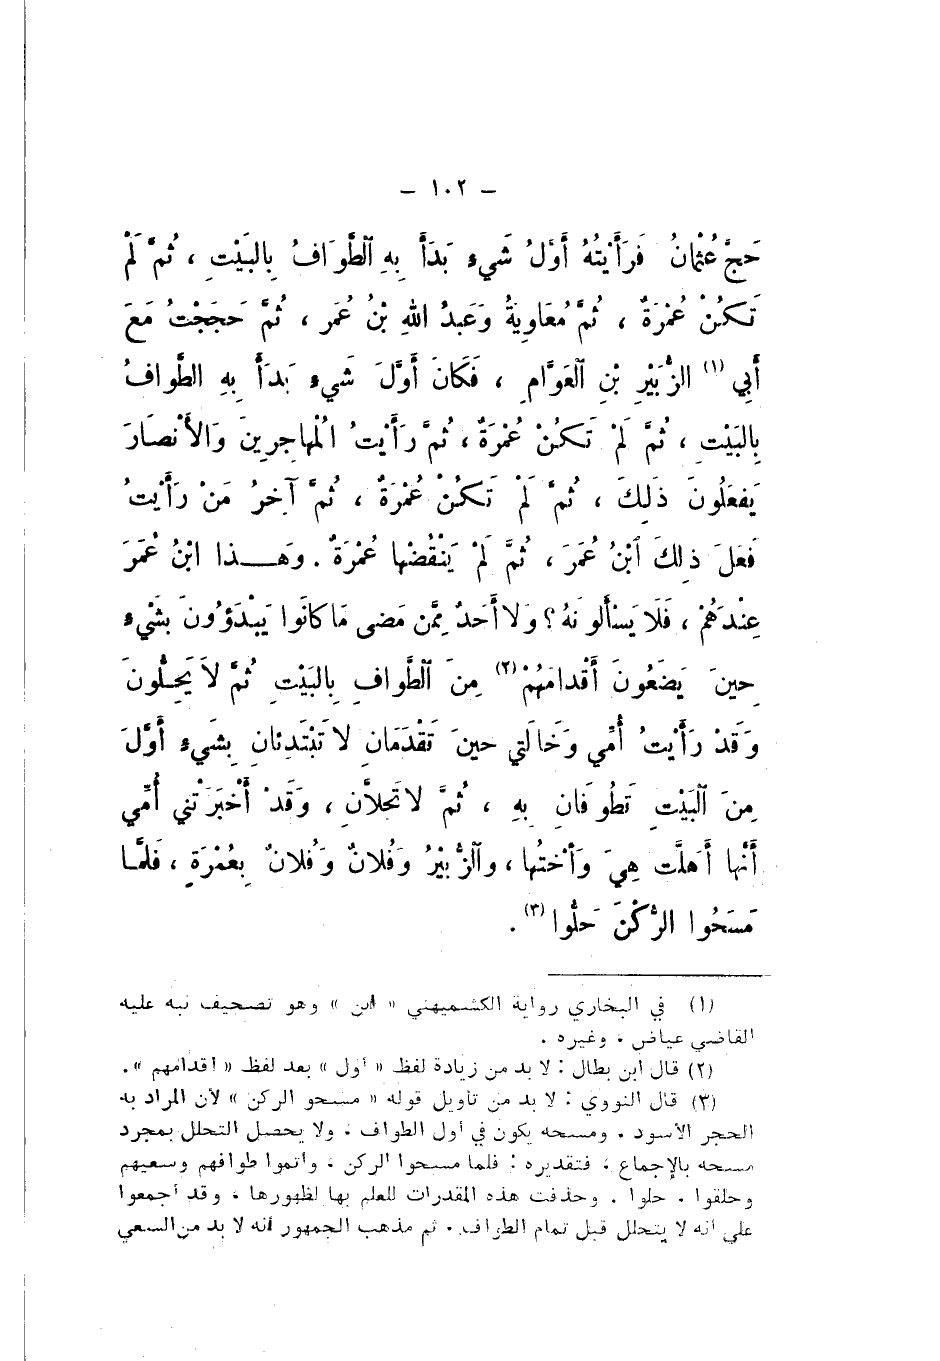 – ١٠٢ –
حَجَّ عُثْمَانُ فَرَأَيْتُهُ أَوَّلُ شَيءٍ بَدَأَ بِهِ ٱلطَّوَافُ بِالبَيْتِ ، ثُمَّ لَمْ
تَكُنْ عُمْرَةٌ ، ثُمَّ مُعَاوِيَةُ وَعَبدُ اللهِ بْنُ عُمَر ، ثُمَّ حَجَجْتُ مَعَ
أَبِي (١) الزُّبَيْرِ بْنِ ٱلعَوَّامِ ، فَكَانَ أَوَّلَ شَيءٍ بَدَأَ بِهِ الطَّوافُ
بِالبَيْتِ ، ثُمَّ لَمْ تَكُنْ عُمْرَةٌ ، ثُمَّ رَأَيْتُ الْمهاجِرِينَ وَالأَنْصَارَ
يَفعَلُونَ ذَلِكَ ، ثُمَّ لَمْ تَكُنْ عُمْرَةٌ ، ثُمَّ آخِرُ مَنْ رَأَيْتُ
فَعَلَ ذلِكَ ٱبْنُ عُمَرَ ، ثُمَّ لَمْ يَنْقُضْها عُمْرَةً . وَهَـــذا ابْنُ عُمَرَ
عِنْدَهُمْ ، فَلَا يَسْأَلونَهُ ؟ وَلا أَحَدٌ مِمَّن مَضى مَا كَانُوا يَبْدَؤُونَ بشَيْءٍ
حِينَ يَضَعُونَ أَقْدامَهُمْ (٢) مِنَ ٱلطَّوافِ بِالبَيْتِ ثُمَّ لاَ يَحِلُّونَ
وَقَدْ رَأَيْتُ أُمِّي وَخَالَتي حينَ تَقْدَمَانِ لا تَبْتَدِئانِ بِشَيءٍ أَوَّلَ
مِنَ ٱلبَيْتِ تَطُوفَانِ بِهِ ، ثُمَّ لا تَحلاَّنِ ، وَقَدْ أَخْبَرَتْني أُمِّي
أَنَّها أَهَلَّت هِيَ وَأخْتُها ، وٱلزُّبيْرُ وَفُلانٌ وَفُلانٌ بِعُمْرَةٍ ، فَلَمَّـا
مَسَحُوا الرُّكْنَ حَلُّوا (٣) .
(١) في البخاري رواية الكشميهني « ابن » وهو تصحيف نبه عليه
القاضي عياض ، وغيره .
(٢) قال ابن بطال : لا بد من زيادة لفظ « أول » بعد لفظ « أقدامهم » .
(٣) قال النووي : لا بد من تأويل قوله « مسحو الركن » لأن المراد به
الحجر الأسود . ومسحه يكون في أول الطواف ، ولا يحصل التحلل بمجرد
مسحه بالإجماع ، فتقديره : فلما مسحوا الركن ، وأتموا طوافهم وسعيهم
وحلقوا . حلوا . وحذفت هذه المقدرات للعلم بها لظهورها ، وقد أجمعوا
على أنه لا يتحلل قبل تمام الطواف . ثم مذهب الجمهور أنه لا بد من السعي